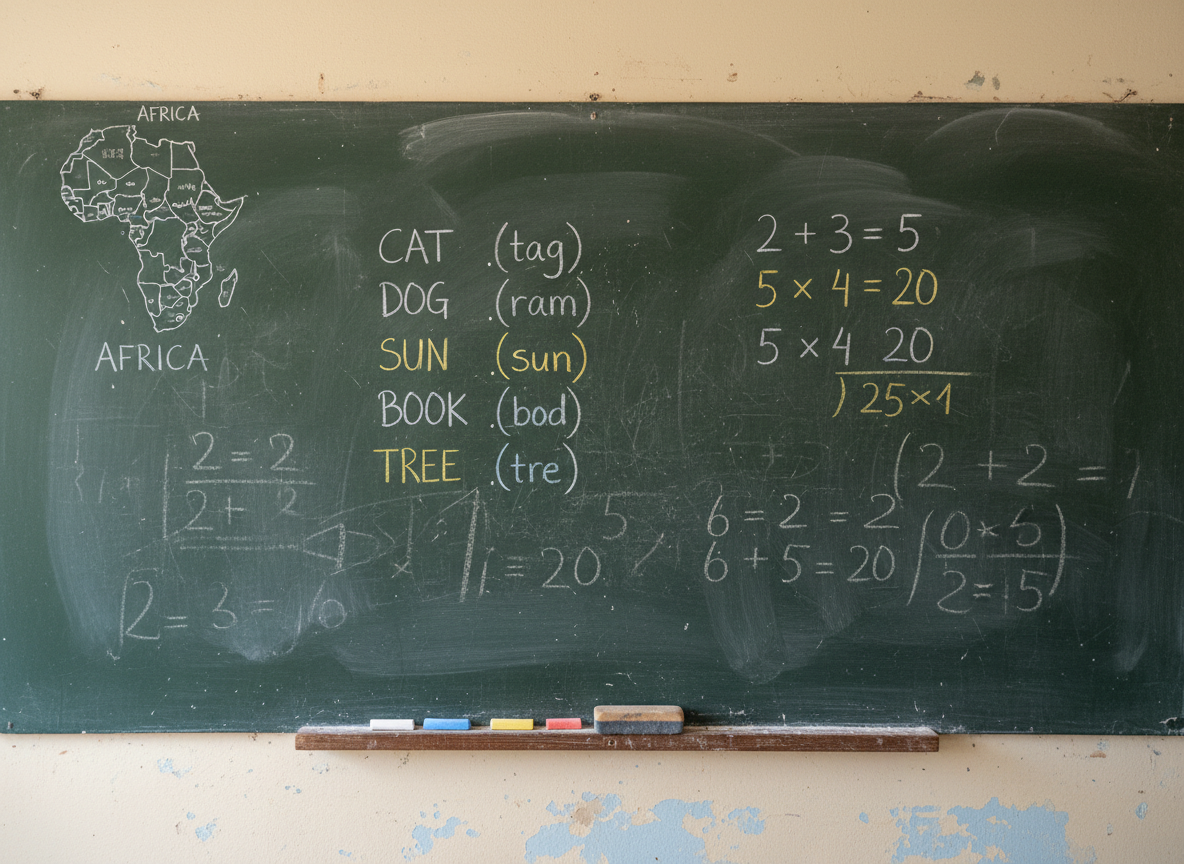 AFRICA
AFRICA
CAT .(tag)
DOG .(ram)
SUN .(sun)
BOOK .(bod)
TREE .(tre)
2 + 3 = 5
5 × 4 = 20
5 × 4 20
)25×1
2 = 2
2 + 2
2 = 3 = 16
5
= 20
6 = 2 = 2
6 + 5 = 20
(2 + 2 =
(0 × 5
2 = 15)